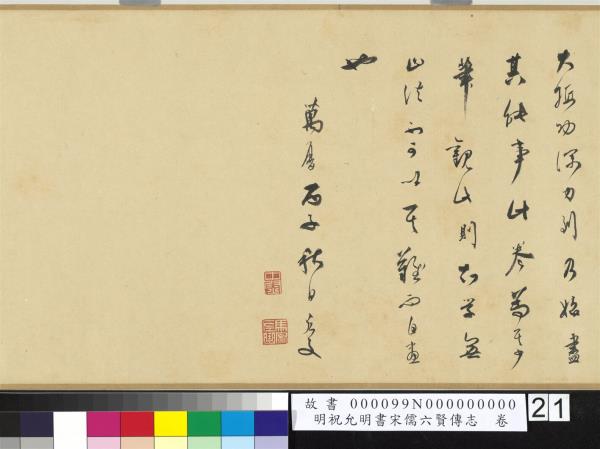 大抵功深力到乃始盡
其能事此卷為其少
筆觀此則知學無
止法不可以其難而自畫
也
萬曆丙子秋日
故書 000099N000000000
明祝允明書宋儒六賢傳志 卷
21